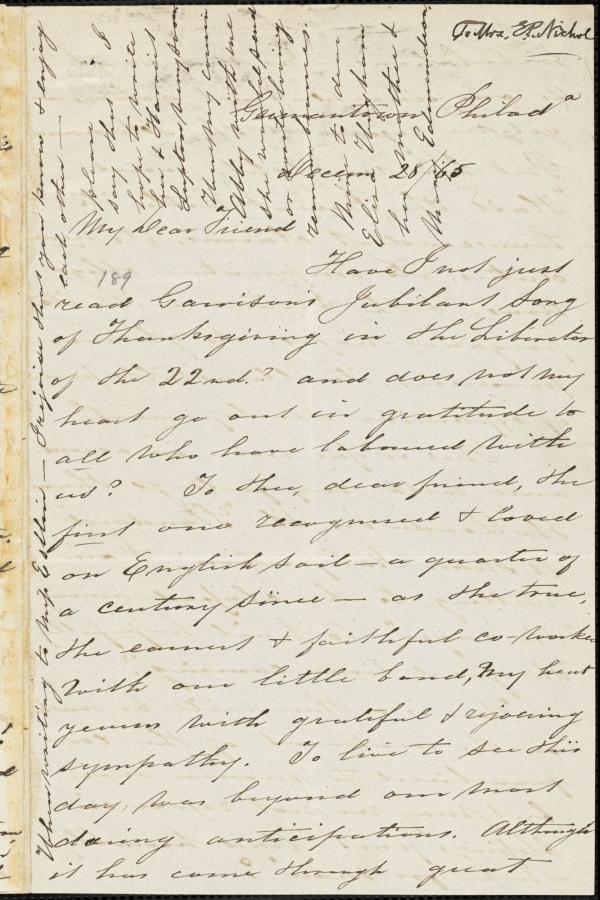 To Mrs. E. P. Nichol
Germantown Philad a
Decem 28/65
My Dear Friend
189
Have I not just
read Garrison's Jubilant Song
of Thanksgiving in the Liberator
of the 22nd.? and does not my
heart go out in gratitude to
all who have laboured with
us? To thee, dear friend, the
first one recognised & loved
on English soil — a quarter of
a century since — as the true,
the earnest & faithful co-worker
with our little band, my heart
yearns with grateful & rejoicing
sympathy. To live to see this
day, was beyond our most
daring anticipations. Although
it has come through great
When writing to Miss Estlin — I rejoice that you know & enjoy
each other —
please I
say that
hope to write
her & Harriet
Lupton very soon
Thank my cousin
Abby with me
she would send
or write loving
remembrances.
Mine to dear
Eliza Wigham
her Mother &
Mary Edmundson